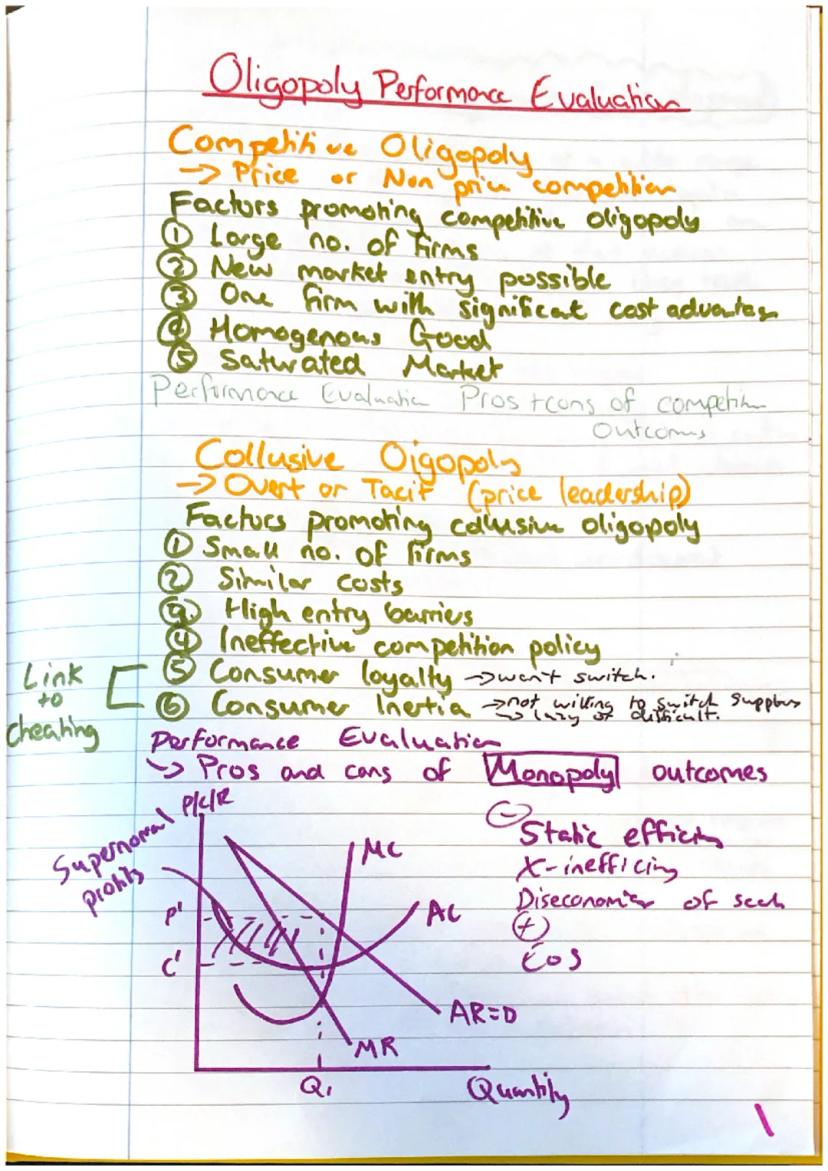 Oligopoly Performance Evaluation
Competitive Oligopoly
→ Price or Non price competition
Factors promoting competitive oligopoly
① Large no. of firms
② New market entry possible
③ One firm with significant cost advantage
④ Homogenous Good
⑤ Saturated Market
Performance Evaluation Pros + cons of competitive
Outcomes
Collusive Oigopoly
→ Overt or Tacit (price leadership)
Factors promoting collusive oligopoly
① Small no. of firms
② Similar costs
③ High entry barriers
④ Ineffective competition policy
⑤ Consumer loyalty → won't switch.
⑥ Consumer Inertia → not willing to switch suppliers
→ lazy or difficult.
Link
to
cheating
Performance Evaluation
↳ Pros and cons of Monopoly outcomes
P/C/R
Supernormal
profits
MC
AC
P'
C'
AR=D
MR
Q1
Quantity
⊖
Static efficiency
X-inefficiency
Diseconomies of scale
⊕
EOS